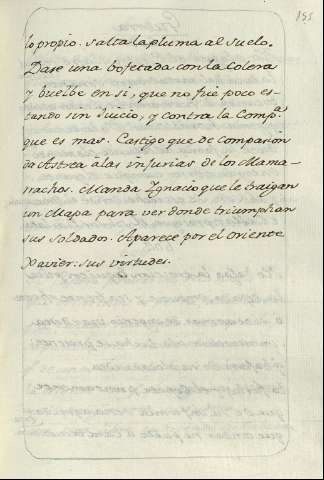 155
lo propio. salta la pluma al suelo.
Dase una bofetada con la Colera
y buelbe en si, que no fue poco es-
tando sin juicio, y contra la Comp.ª
que es mas. Castigo que de compasion
da Astrea â las injurias de los Mama-
rrachos. Manda Ygnacio que le traigan
un Mapa para ver donde triumphan
sus soldados. Aparece por el Oriente
Xavier. sus virtudes.